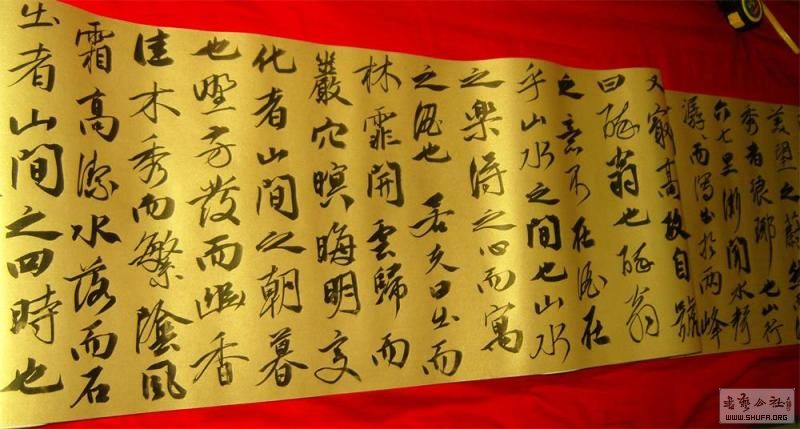 美望之蔚然
秀者琅琊也山行
六七里漸聞水聲
潺々而瀉出於兩峰
又最高故自號
曰醉翁也醉翁
之意不在酒在
乎山水之間也山水
之樂得之心而寓
之酒也 若夫日出而
林霏開雲歸而
巖穴暝晦明變
化者山間之朝暮
也野芳發而幽香
佳木秀而繁陰風
霜高潔水落而石
出者山間之四時也
書藝公社
WWW.SHUFA.ORG